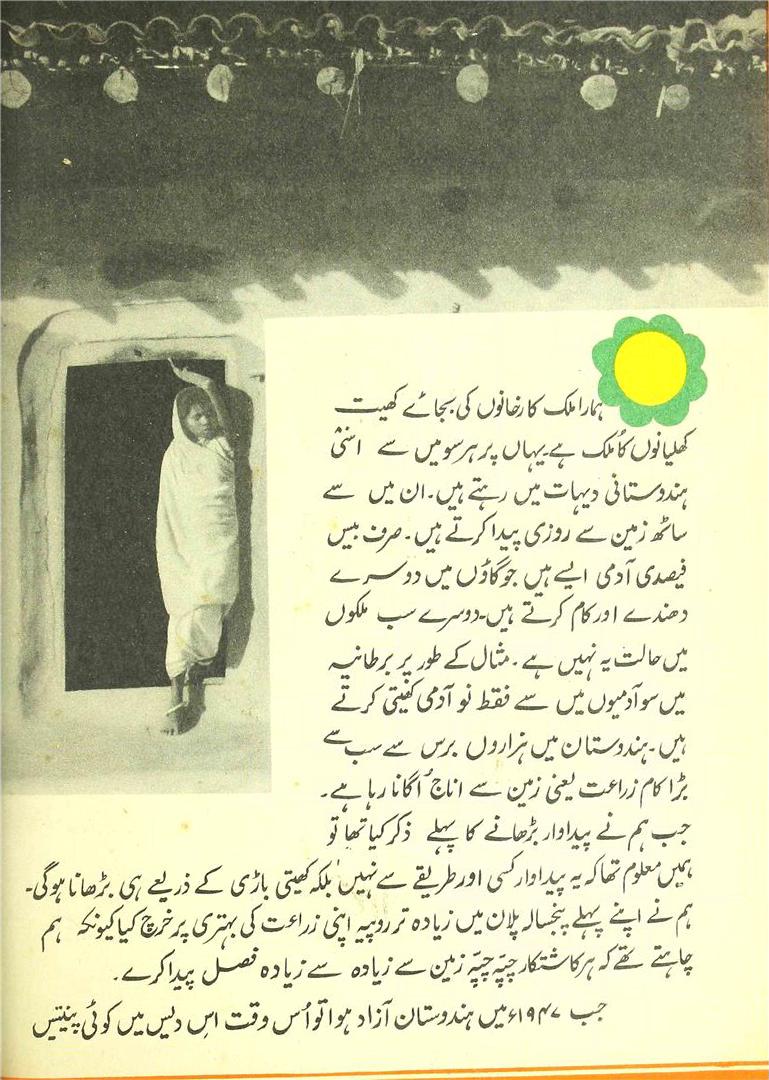 ہمارا ملک کارخانوں کی بجائے کھیت
کھلیانوں کا ملک ہے۔ یہاں پر ہر سو میں سے اسّی
ہندوستانی دیہات میں رہتے ہیں۔ ان میں سے
ساٹھ زمین سے روزی پیدا کرتے ہیں۔ صرف بیس
فیصدی آدمی ایسے ہیں جو گاؤں میں دوسرے
دھندے اور کام کرتے ہیں۔ دوسرے سب ملکوں
میں حالت یہ نہیں ہے۔ مثال کے طور پر برطانیہ
میں سو آدمیوں میں سے فقط نو آدمی کھیتی کرتے
ہیں۔ ہندوستان میں ہزاروں برس سے سب سے
بڑا کام زراعت یعنی زمین سے اناج اُگانا رہا ہے۔
جب ہم نے پیداوار بڑھانے کا پہلے ذکر کیا تھا تو
ہمیں معلوم تھا کہ یہ پیداوار کسی اور طریقے سے نہیں بلکہ کھیتی باڑی کے ذریعے ہی بڑھانا ہوگی۔
ہم نے اپنے پہلے پنجسالہ پلان میں زیادہ تر روپیہ اپنی زراعت کی بہتری پر خرچ کیا کیونکہ ہم
چاہتے تھے کہ ہر کاشتکار چپّہ چپّہ زمین سے زیادہ سے زیادہ فصل پیدا کرے۔
جب ۱۹۴۷ء میں ہندوستان آزاد ہوا تو اُس وقت اِس دیس میں کوئی پینتیس